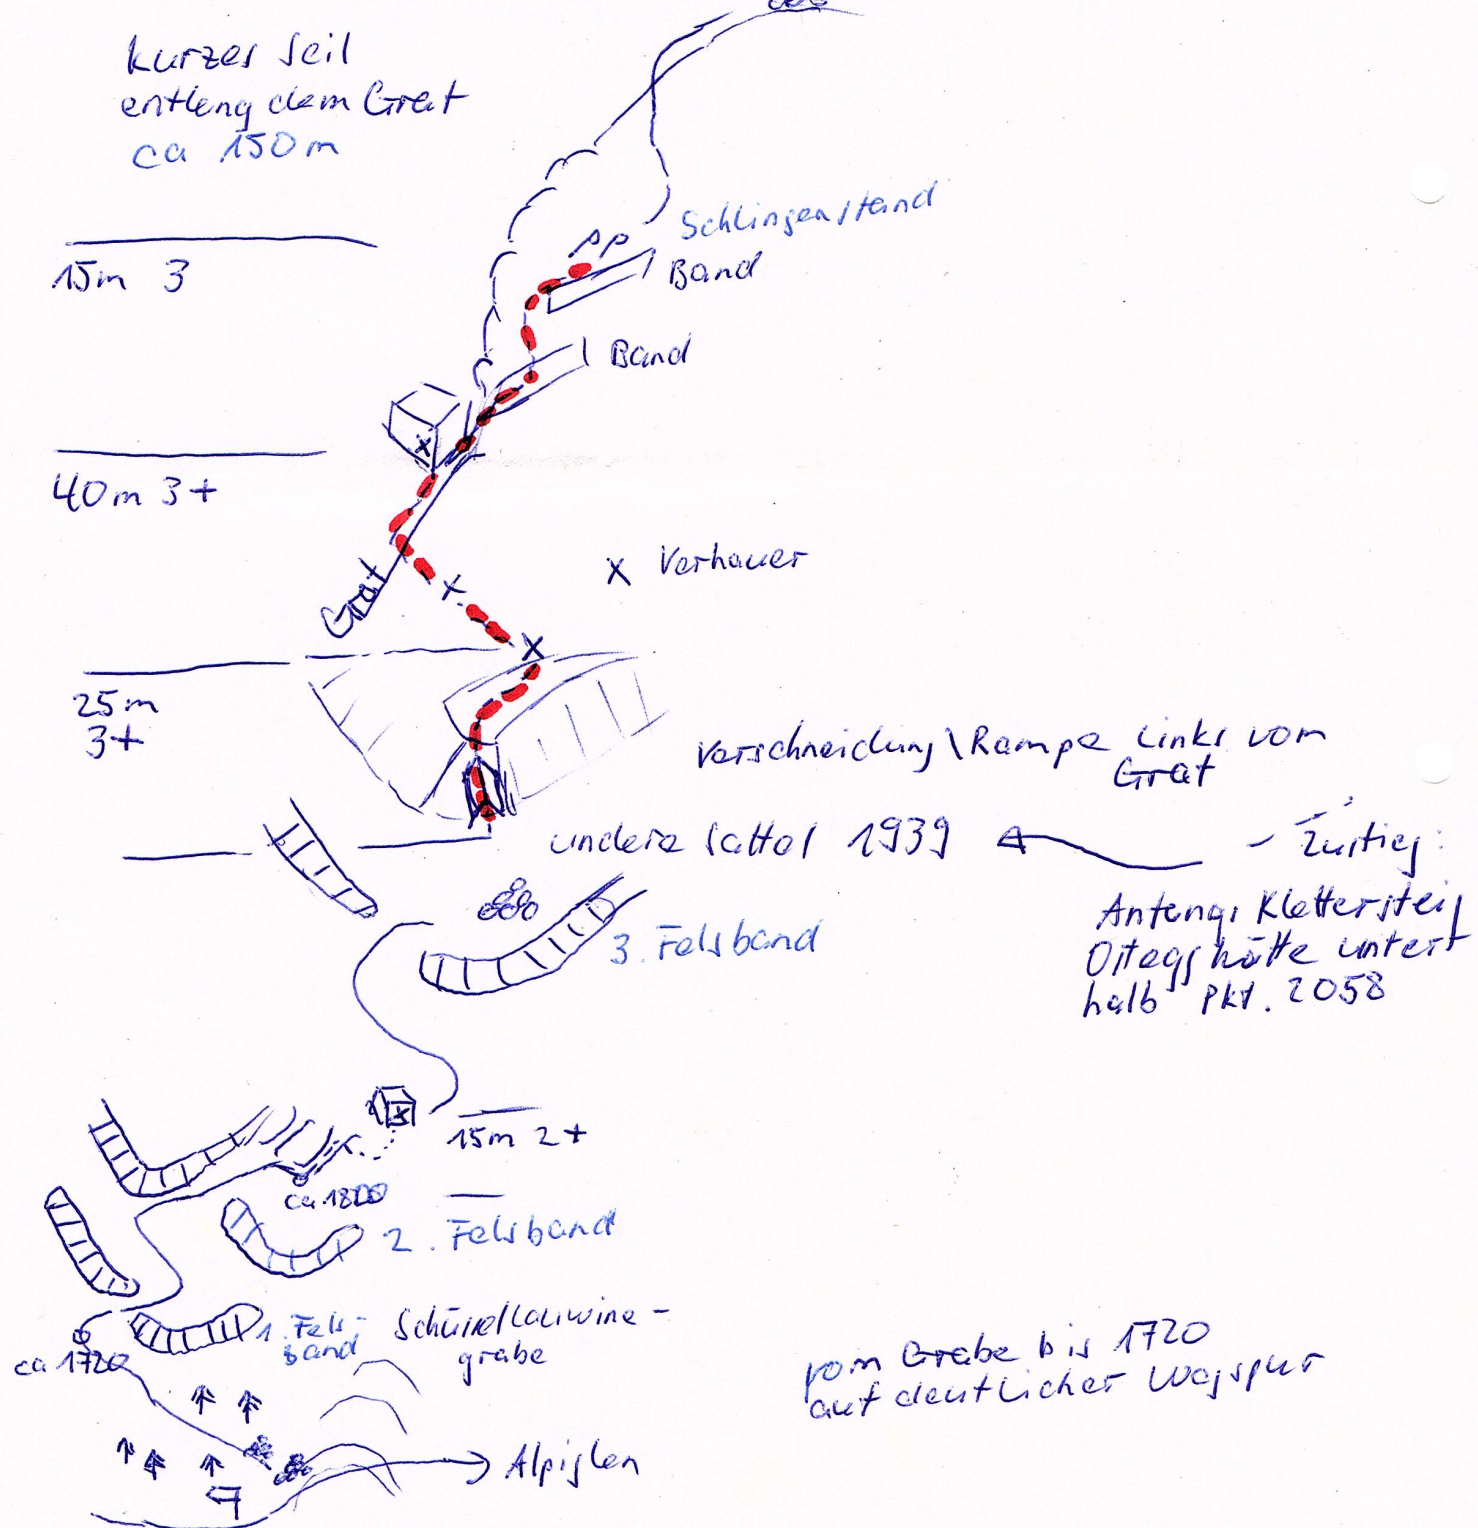 kurzes Seil
entlang dem Grat
ca 150m
Schlingenstand
Band
15m 3
Band
40m 3+
x Verhauer
Grat
25m
3+
Verschneidung\Rampe links vom
Grat
undere Sattel 1939
- Zustieg:
Anfang Klettersteig
Ostegghütte unter
halb Pkt. 2058
3. Felsband
15m 2+
ca 1800
2. Felsband
1. Fels-
band
Schüssellauwine-
grabe
ca 1720
vom Grabe bis 1720
auf deutlicher Wegspur
Alpiglen